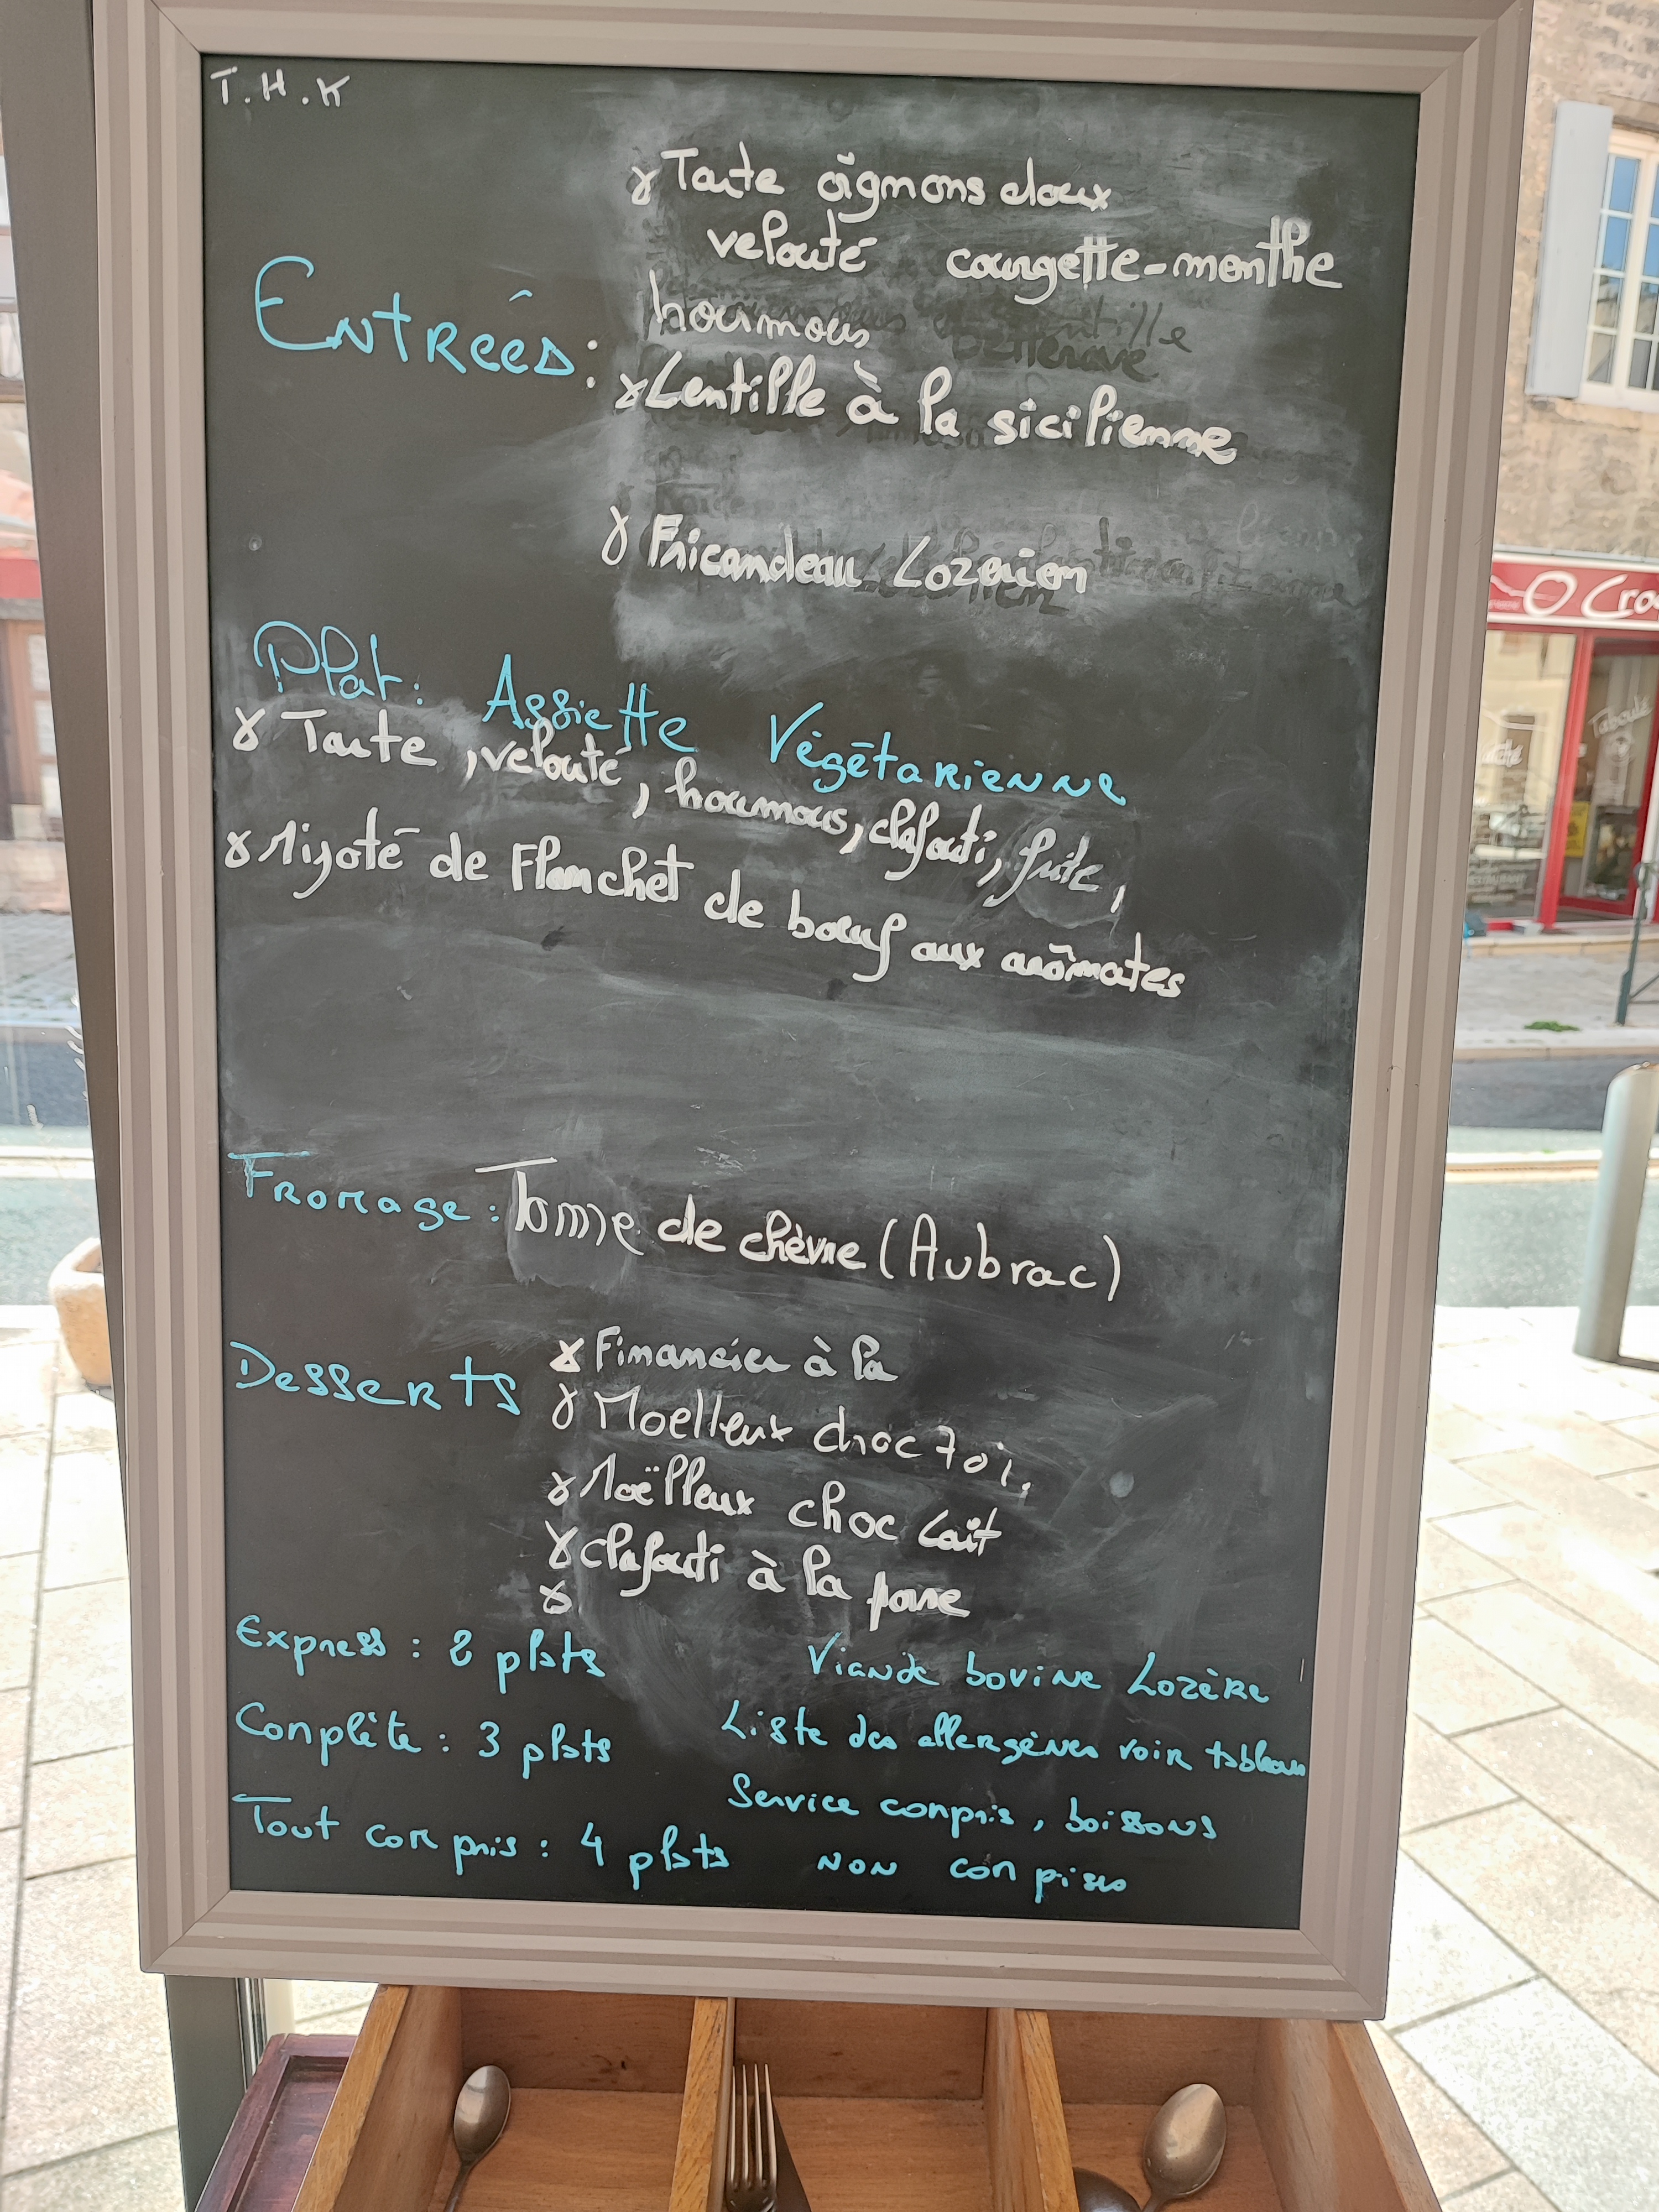 T.H.K
Tarte oignons doux
velouté courgette-menthe
Entrées:
houmous
Lentille à la sicilienne
Fricandeau Lozérien
Plat: Assiette Végétarienne
Tarte, velouté, houmous, clafouti, frite,
Mijoté de Flanchet de bœuf aux arômates
Fromage: Tomme de chèvre (Aubrac)
Desserts
Financier à la
Moelleux choc
Moëlleux choc Lait
clafouti à la
Express: 2 plats
Viande bovine Lozère
Conplète: 3 plats
Liste des allergènes voir tableau
Service conpris, boissons
Tout compris: 4 plats
non
O Cro
Taboulé